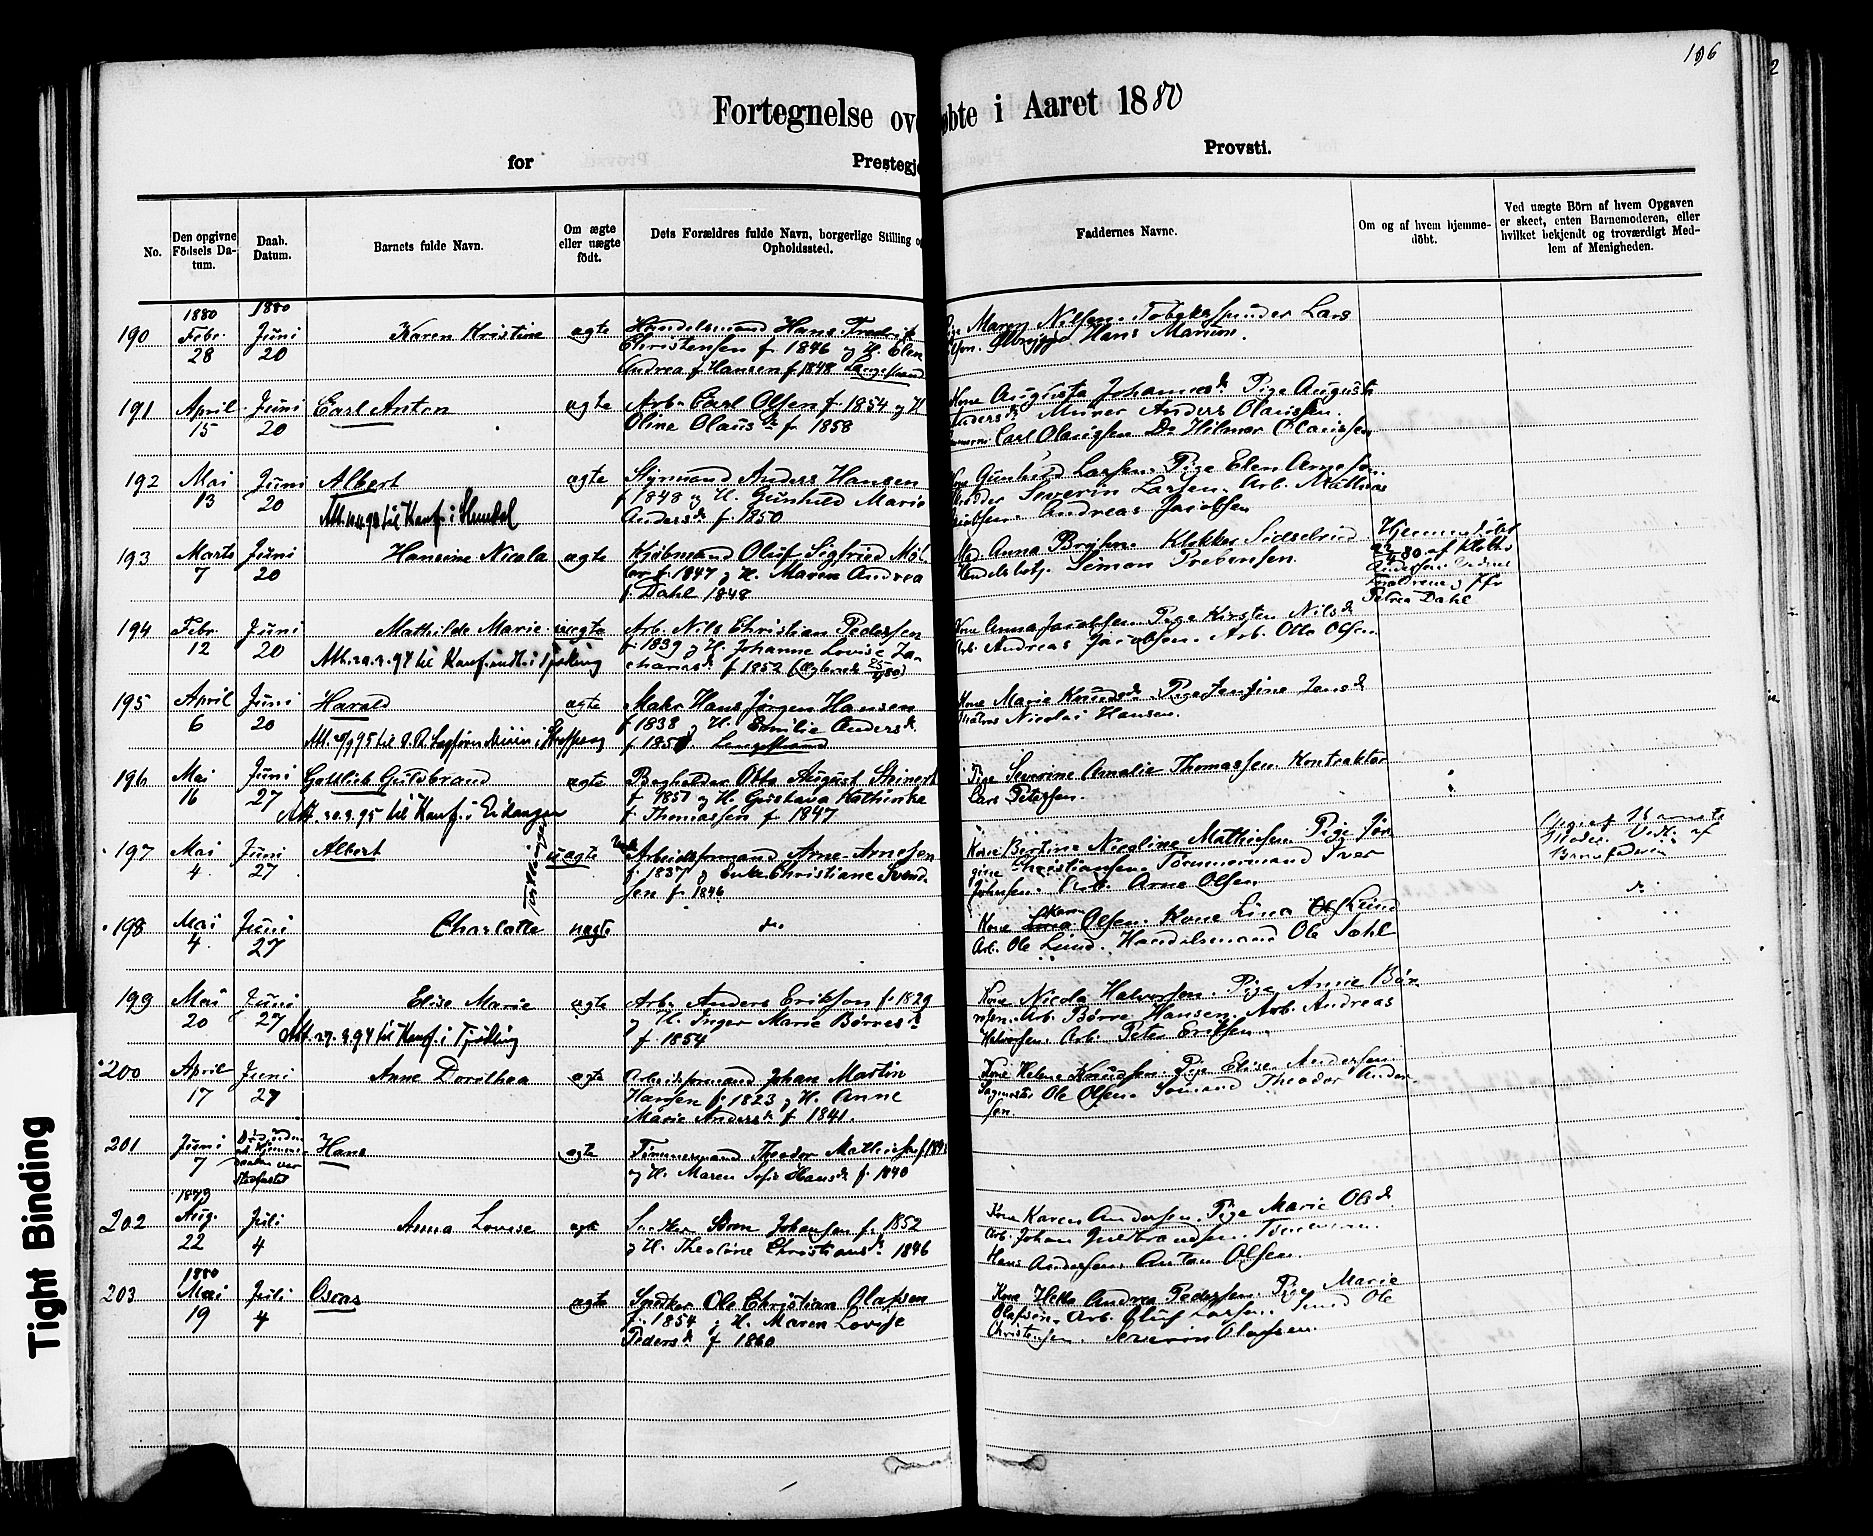 196
2
Fortegnelse ov øbte i Aaret 1880
for Prestegje Provsti.
No.
Den opgivne Födsels Da-
tum.
Daab.
Datum.
Barnets fulde Navn.
Om ægte
eller uægte
födt.
Dets Forældres fulde Navn, borgerlige Stilling og
Opholdssted.
Faddernes Navne.
Om og af hvem hjemme-
döbt.
Ved uægte Börn af hvem Opgaven
er skeet, enten Barnemoderen, eller
hvilket bekjendt og troværdigt Med-
lem af Menigheden.
190
1880
Febr.
28
1880
Juni
20
Karen Kristine
ægte
Handelsmand Hans Fredrik
Christensen f. 1846 og H. Elen
Andrea f. Hansen f. 1848 Langestrand
Maren Nilsen. Tobaksspinder Lars
Hans Martin.
191
April
15
Juni
20
Carl Anton
ægte
Arb. Carl Olsen f. 1854 og H
Oline Olausdr f. 1858
Kone Augusta Johannesdr. Pige Augusta
Andersdr. Murer Anders Olaussen.
Carl Olaussen Do Hilmar Olaussen
192
Mai
13
Juni
20
Albert
Att. til Konf. i Slemdal
ægte
Styrmand Anders Hansen
f. 1848 og H. Gunhild Marie
Andersdr f. 1850
Gunhild Larsen. Pige Elen Arnesen.
Severin Larsen. Arb. Mathias
Jacobsen. Andreas Jacobsen
193
Marts
7
Juni
20
Hansine Nicola
ægte
Kjöbmand Oluf Sigfried Möl-
ler f. 1847 og H. Maren Andrea
f. Dahl 1848
Mad. Anna Klokker
Handelsbetj. Simon Prebensen.
Hjemmedöbt
af Klokk.
Andersen
Forældrene og
Petrea Dahl
194
Febr.
12
Juni
20
Mathilde Marie
Att. 20.9.94 til Konf. indt. i Tjölling
uægte
Arb. Nils Christian Pedersen
f. 1839 og H. Johanne Lovise Za-
chariasdr f. 1852
Kone Anna Jacobsen. Pige Kirsten Nilsdr
Arb. Andreas Jacobsen. Arb. Otto Olsen
195
April
6
Juni
20
Harald
ægte
Maler Hans Jørgen Hansen
f. 1838 og H. Emilie Andersdr.
f. 1850. Langestrand
Kone Marie Knudsdr. Pige Jensine Jansdr
Nicolai Hansen.
196
Mai
16
Juni
27
Gottlieb Guldbrand
Att. 30.9.95 til Konf. i Eidanger
ægte
Bogholder Otto August Steinert
f. 1851 og H. Gustava Kathinka
f. Thomassen f. 1847
Pige Severine Amalie Thomassen. Kontraktör
Lars Petersen.
197
Mai
4.
Juni
27
Albert
tvillinger
uægte
Arbeidsformand Arne Arnesen
f. 1837 og Enke Christiane Svend-
sen f. 1846
Kone Bertine Nicoline Mathisen. Pige Jör-
gine Christiansen. Tömmermand Iver
Johnsen. Arb. Arne Olsen.
Opgivet af Barnets
Moder. Vedt. af
Barnefaderen
198
Mai
4.
Juni
27
Charlotte
uægte
do.
Kone Karen Olsen. Kone Lina Lund
Arb. Ole Lund. Handelsmand Ole Dahl
do
199
Mai
20
Juni
27
Elise Marie
Att. 27.9.94 til Konf. i Tjölling
ægte
Arb. Anders Erikson f. 1829
og H. Inger Marie Börresdr
f. 1854
Kone Nicola Halvorsen. Pige Annie Bör-
resen. Arb. Börre Hansen. Arb. Andreas
Halvorsen. Arb. Peter Eriksen.
200
April
17
Juni
27
Anne Dorothea
ægte
Arbeidsformand Johan Martin
Hansen f. 1823 og H. Anne
Marie Andersdr f. 1841.
Kone Helene Knudsen. Pige Elise Andersen
Sagmester Ole Olsen. Sömand Theodor Ander-
sen.
201
Juni
7
Död inden
Hjemme-
daaben var
stadfæstet
Hans
ægte
Tömmermand Theodor Mathisen
og H. Maren Sofie Hansdr f. 1840
202
1879
Aug.
22
Juli
4
Anna Lovise
ægte
Snedker Sören Johansen f. 1852
og H. Theoline Christiansdr 1846
Kone Karen Andersen. Pige Marie Olsdr.
Arb. Johan Guldbrandsen.
Hans Andersen. Anton Olsen.
203
1880
Mai
19
Juli
4
Oscar
ægte
Snedker Ole Christian Olafsen
f. 1854 og H. Maren Lovise
Pedersdr f. 1860
Kone Andrea Pedersen. Pige Marie
Olafsen. Arb. Oluf Larsen. Smed Ole
Christensen. Severin Olafsen.
Tight Binding